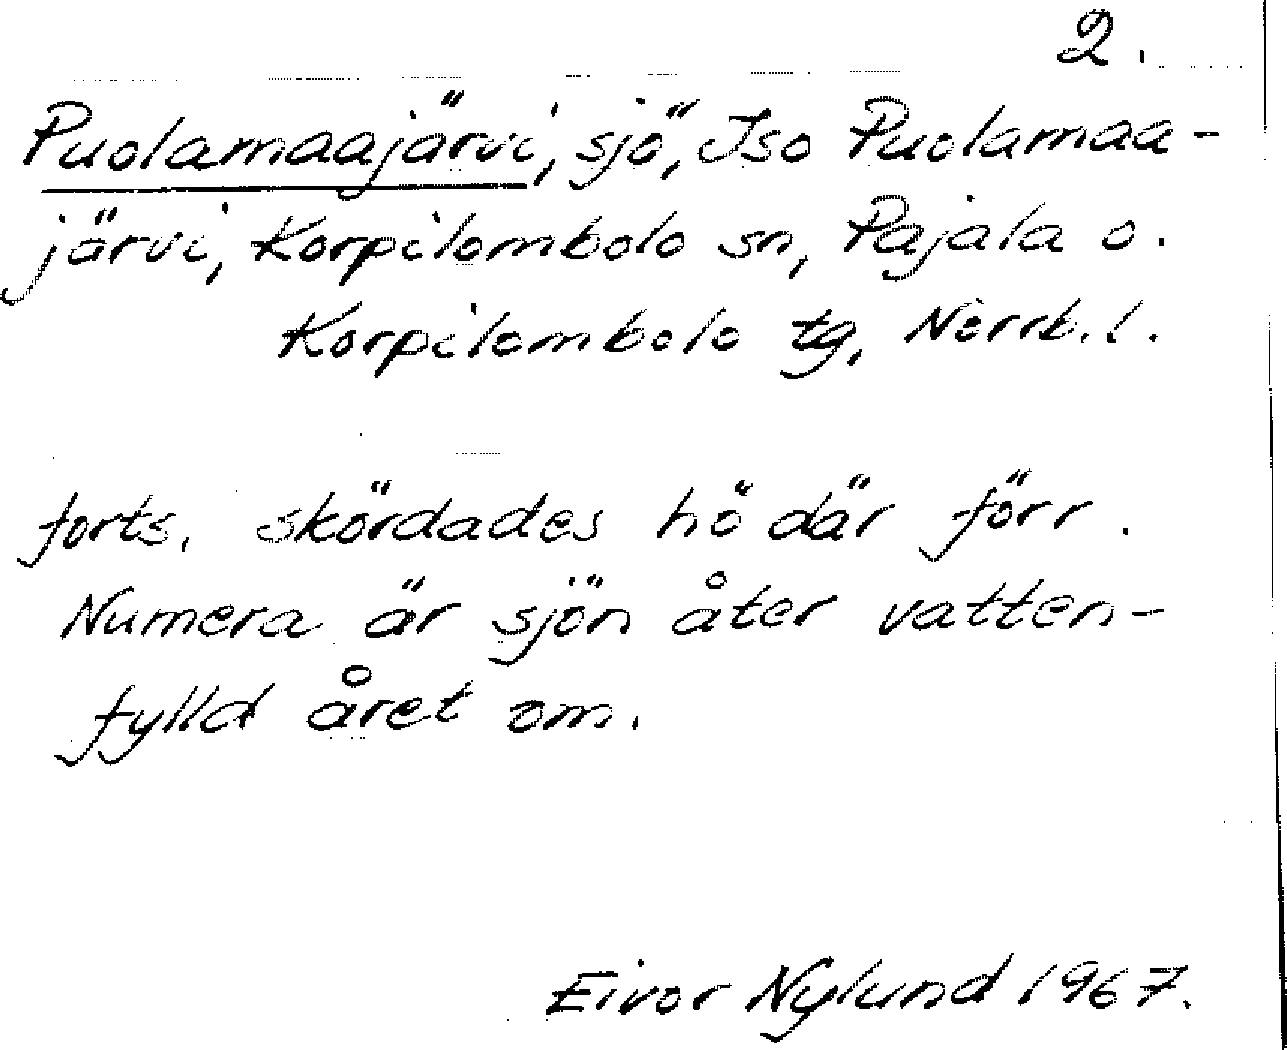 2.
Puolamaajärvi, sjö, Iso Puolamaa-
järvi, Korpilombolo sn, Pajala o.
Korpilombolo tg, Norrb. l.
forts. skördades hö där förr.
Numera är sjön åter vatten-
fylld året om.
Eivor Nylund 1967.